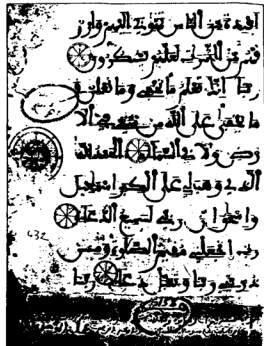 افدة من الناس تهوي اليهم وارز
قهم من الثمرت لعلهم يشكرون
ربنا انك تعلم ما نخفي وما نعلن و
ما يخفى على الله من شيء في الا
رض ولا في السماء الحمد لله
الذي وهب لي على الكبر اسمعيل
واسحق ان ربي لسميع الدعاء
رب اجعلني مقيم الصلوة ومن
ذريتي ربنا وتقبل دعاء ربنا